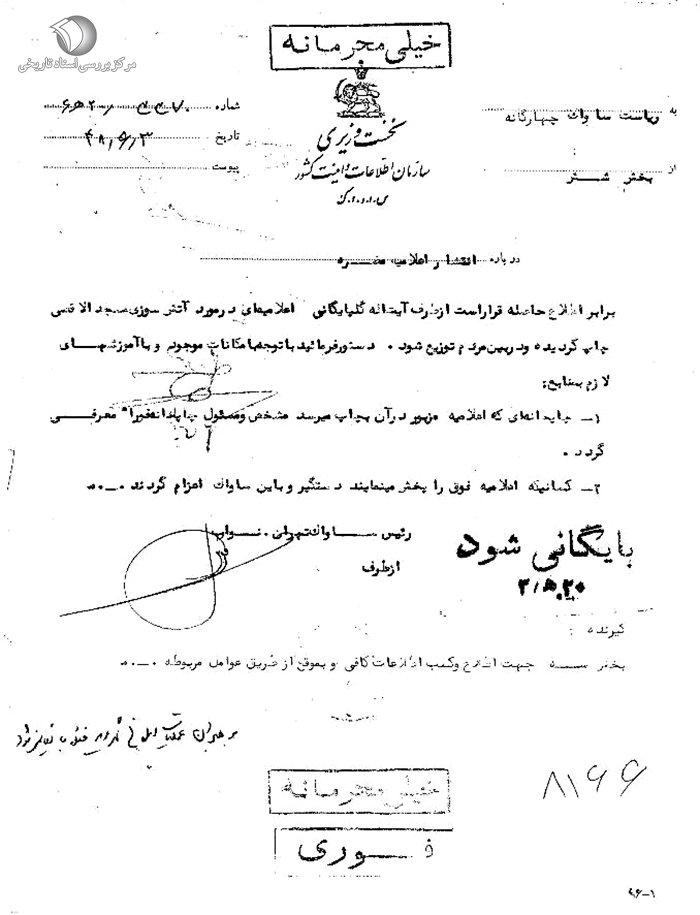 مرکز بررسی اسناد تاریخی
خیلی محرمانه
نخست وزیری
سازمان اطلاعات و امنیت کشور
س.ا.و.ا.ک
به ریاست ساواک چهارگانه
از بخش شش
شماره
تاریخ ۴۸/۶/۳
پیوست
درباره انتشار اعلامیه مضره
برابر اطلاع حاصله قرار است از طرف آیت‌اله گلپایگانی اعلامیه‌ای در مورد آتش سوزی مسجد الاقصی
چاپ گردیده و در بین مردم توزیع شود . دستور فرمائید با توجه بامکانات موجود و با آموزشهای
لازم بمنابع:
۱- چاپخانه‌ای که اعلامیه مزبور در آن بچاپ میرسد مشخص و مسئول چاپخانه فورا" معرفی
گردد .
۲- کسانیکه اعلامیه فوق را پخش مینمایند دستگیر و باین ساواک اعزام گردند
رئیس ساواک تهران . نواب
از طرف
بایگانی شود
گیرنده :
بخش سه جهت اطلاع و کسب اطلاعات کافی و بموقع از طریق عوامل مربوطه
خیلی محرمانه
۸۱۶۶
فوری